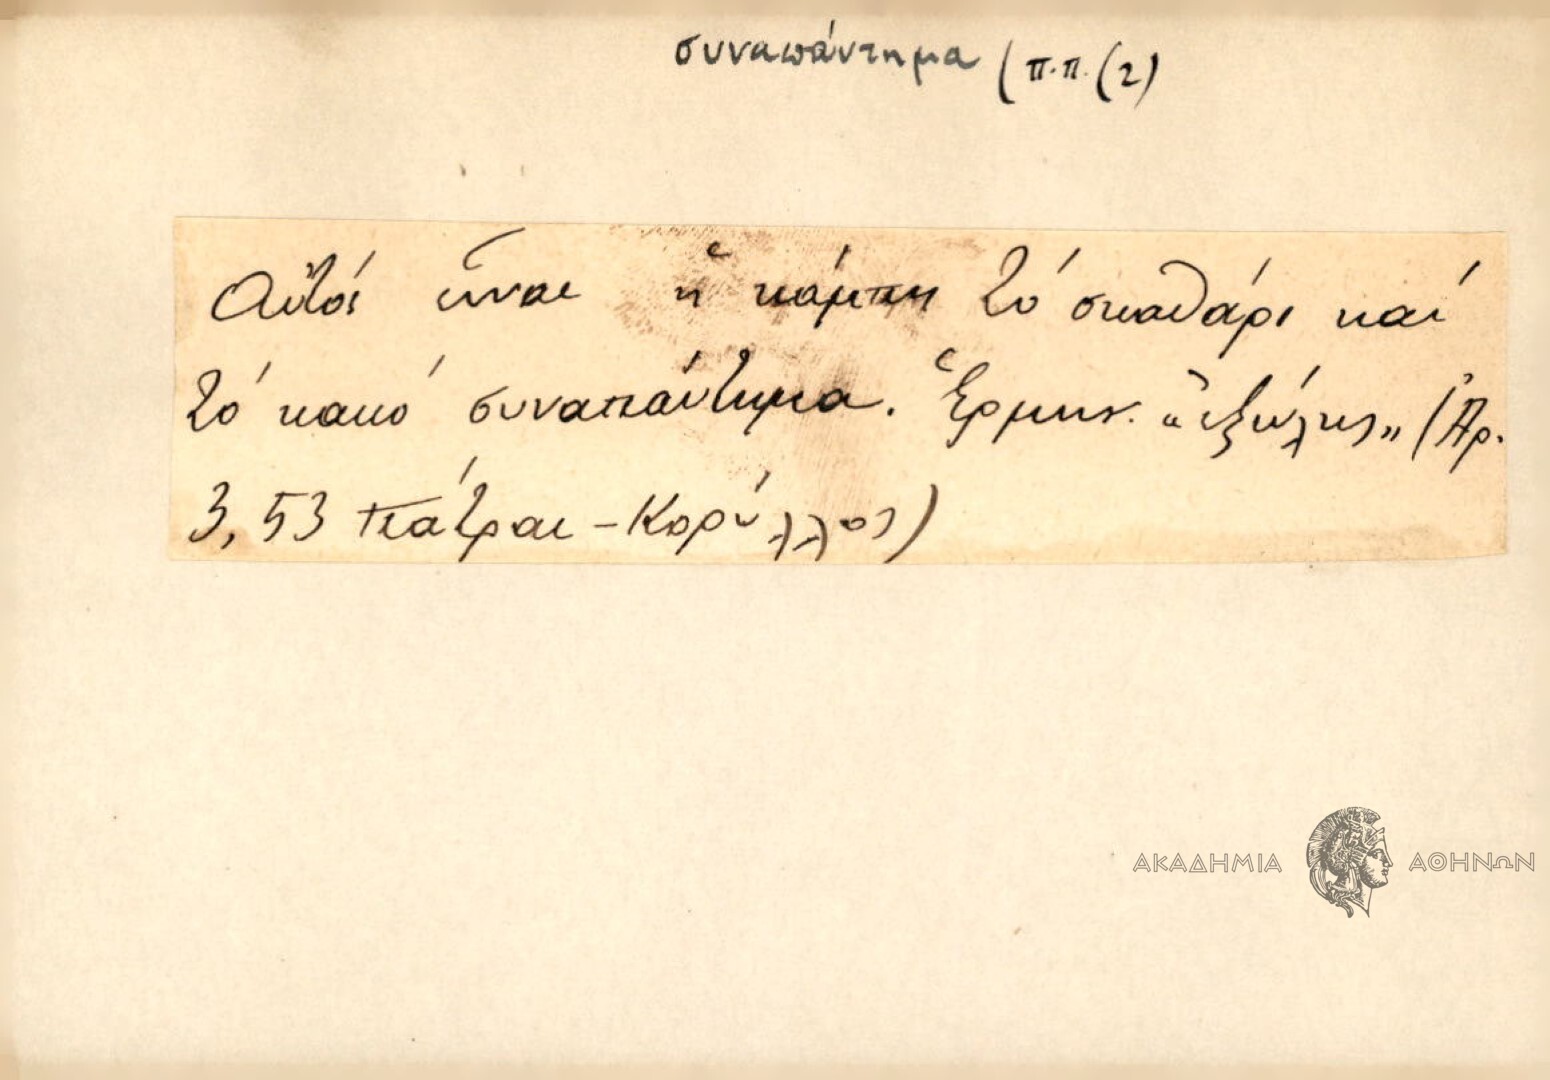 συναπάντημα (π.π. (2)
Αὐτός εἶναι ἡ κάμπη τό σκαθάρι καί
τό κακό συναπάντημα. Ἑρμην. "ἐξώλης" (Ἀρ.
3, 53 Πάτραι - Κορύλλος)
ΑΚΑΔΗΜΙΑ ΑΘΗΝΩΝ